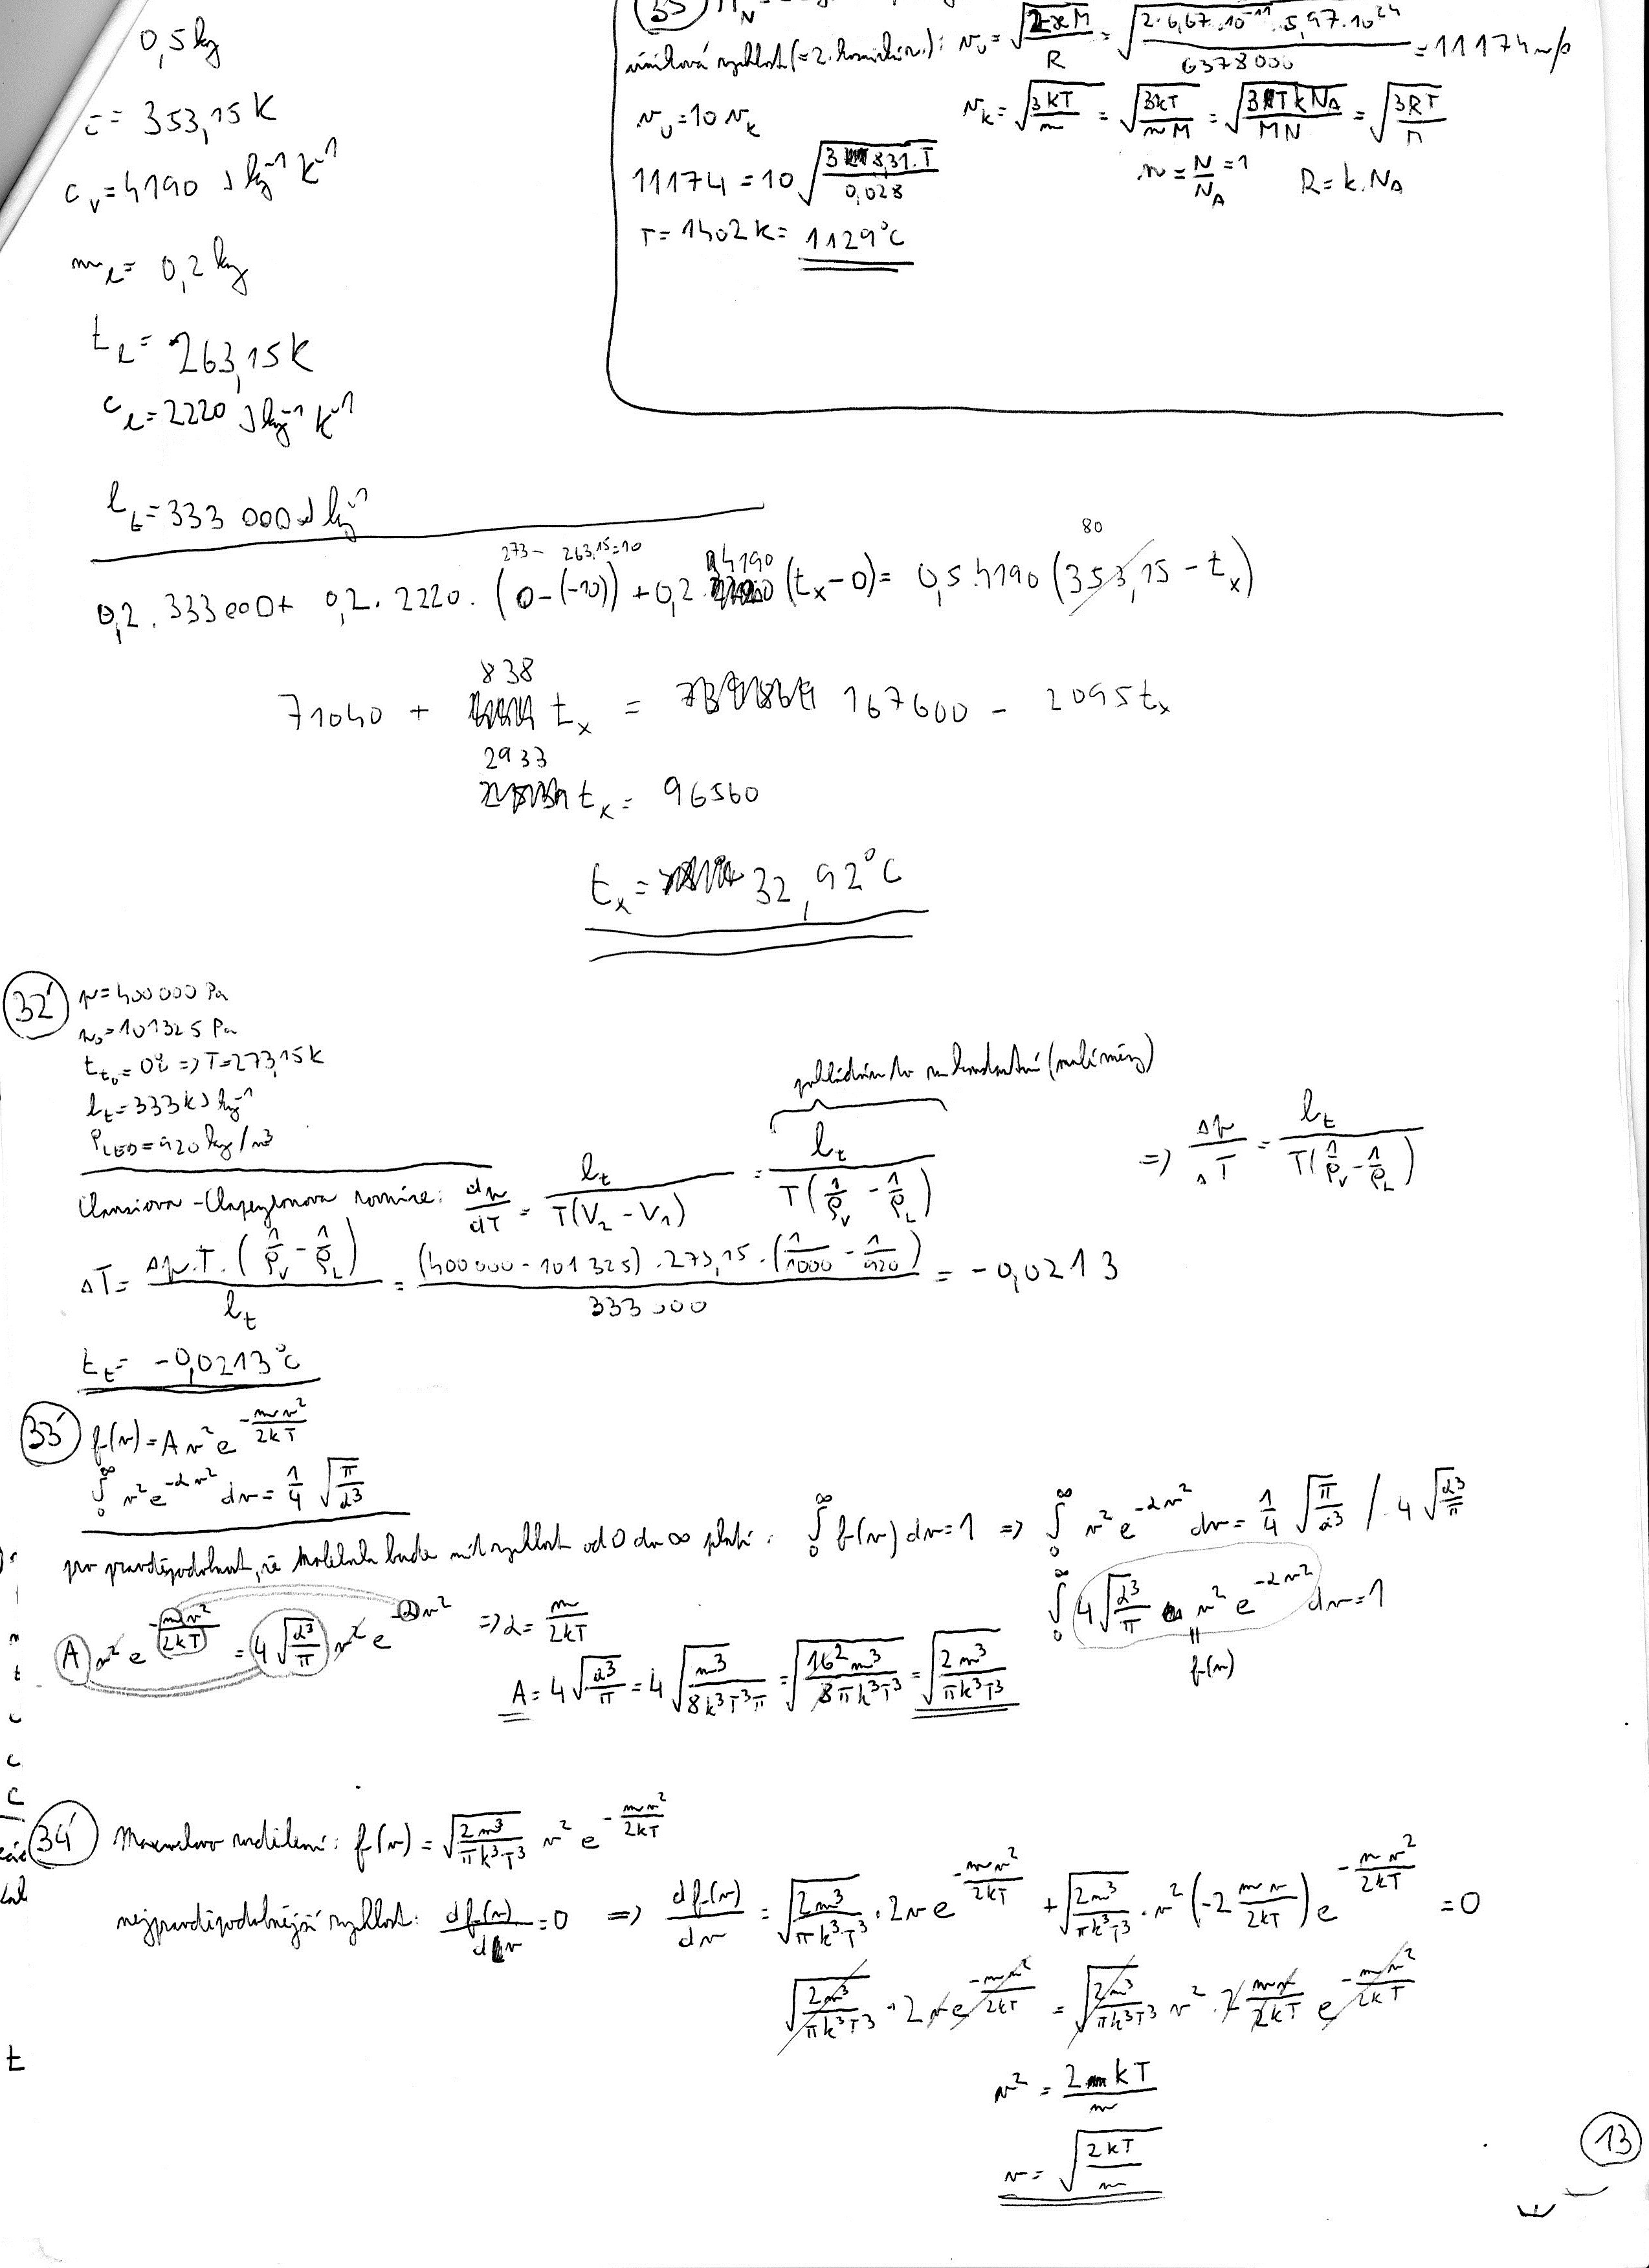 0,5 kg
= 353,15 K
c_v = 4190 J kg⁻¹ K⁻¹
m_L = 0,2 kg
t_L = 263,15 K
c_L = 2220 J kg⁻¹ K⁻¹
l_t = 333 000 J kg⁻¹
35
úniková rychlost (= 2. kosmická r.): v_u = √(2κM/R) = √(2·6,67·10⁻¹¹·5,97·10²⁴/6378000) = 11174 m/s
v_u = 10 v_k
v_k = √(3kT/m) = √(3kT/nM) = √(3TkN_A/MN) = √(3RT/M)
11174 = 10 √(3·8,31·T/0,028)
n = N/N_A = 1 R = k·N_A
T = 1402 K = 1129°C
273 - 263,15 = 10
4190
80
0,2 · 333000 + 0,2 · 2220 · (0-(-10)) + 0,2 (t_x - 0) = 0,5·4190 (353,15 - t_x)
838
71040 + t_x = 167600 - 2095 t_x
2933
t_x = 96560
t_x = 32,92°C
32
p = 400 000 Pa
p₀ = 101325 Pa
t_t₀ = 0°C => T = 273,15 K
l_t = 333 kJ kg⁻¹
ρ_LED = 920 kg/m³
pokládám to za konstantní (malé měny)
Clausiova-Clapeyronova rovnice: dp/dT = l_t/(T(V₂ - V₁)) = l_t/(T(1/ρ_V - 1/ρ_L)) => Δp/ΔT = l_t/(T(1/ρ_V - 1/ρ_L))
ΔT = Δp·T·(1/ρ_V - 1/ρ_L)/l_t = (400000 - 101325)·273,15·(1/1000 - 1/920)/333000 = -0,0213
t_t = -0,0213°C
33
f(v) = A v² e^(-mv²/2kT)
∫₀^∞ v² e^(-αv²) dv = 1/4 √(π/α³)
pro pravděpodobnost, že molekula bude mít rychlost od 0 do ∞ platí: ∫₀^∞ f(v) dv = 1 => ∫₀^∞ v² e^(-αv²) dv = 1/4 √(π/α³) / · 4 √(α³/π)
∫₀^∞ 4 √(α³/π) v² e^(-αv²) dv = 1
A v² e^(-mv²/2kT) = 4 √(α³/π) v² e^(-αv²) => α = m/2kT
= f(v)
A = 4 √(α³/π) = 4 √(m³/8k³T³π) = √(16² m³/8πk³T³) = √(2m³/πk³T³)
34
Maxwellovo rozdělení: f(v) = √(2m³/πk³T³) v² e^(-mv²/2kT)
nejpravděpodobnější rychlost: df(v)/dv = 0 => df(v)/dv = √(2m³/πk³T³) · 2v e^(-mv²/2kT) + √(2m³/πk³T³) · v² (-2 mv/2kT) e^(-mv²/2kT) = 0
√(2m³/πk³T³) · 2v e^(-mv²/2kT) = √(2m³/πk³T³) v² · 2 mv/2kT e^(-mv²/2kT)
v² = 2kT/m
v = √(2kT/m)
13